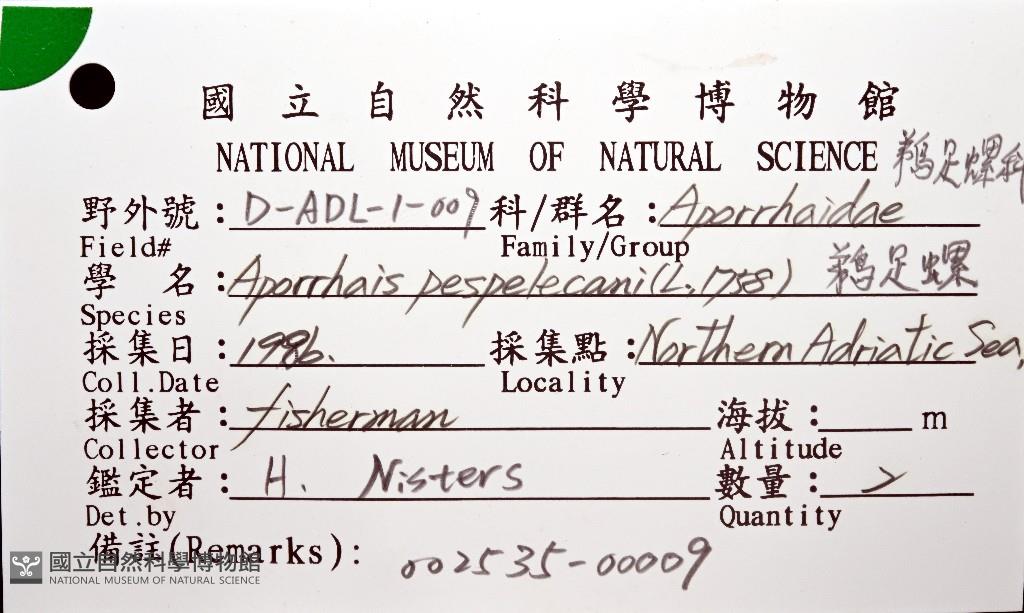 國立自然科學博物館
NATIONAL MUSEUM OF NATURAL SCIENCE 鵜足螺科
野外號：D-ADL-1-009 科/群名：Aporrhaidae
Field# Family/Group
學名：Aporrhais pespelecani (L, 1758) 鵜足螺
Species
採集日：1986. 採集點：Northern Adriatic Sea,
Coll.Date Locality
採集者：fisherman 海拔： m
Collector Altitude
鑑定者：H. Nisters 數量：2
Det.by Quantity
備註(Remarks)： 002535-00009
國立自然科學博物館
NATIONAL MUSEUM OF NATURAL SCIENCE